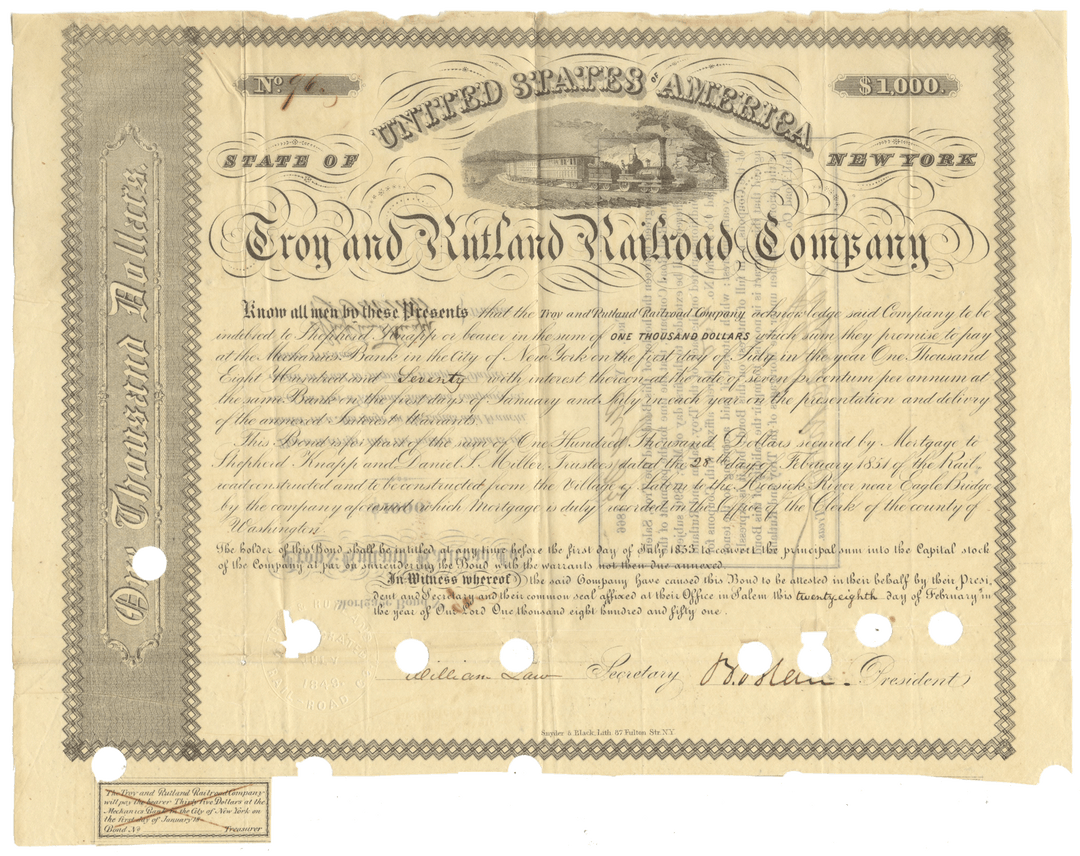 No. 96.
$1,000.
UNITED STATES OF AMERICA
STATE OF NEW YORK
Troy and Rutland Railroad Company
One Thousand Dollars.
Know all men by these Presents that the Troy and Rutland Railroad Company acknowledge said Company to be
indebted to Shepherd Knapp or bearer in the sum of ONE THOUSAND DOLLARS which sum they promise to pay
at the Mechanics Bank in the City of New York on the first day of July in the year One Thousand
Eight Hundred and Seventy with interest thereon at the rate of seven pr centum per annum at
the same Bank on the first days of January and July in each year on the presentation and delivery
of the annexed Interest Warrants.
This Bond is for part of the sum of One Hundred Thousand Dollars secured by Mortgage to
Shepherd Knapp and Daniel S. Miller, Trustees, dated the 28th day of February 1851 of the Rail
road constructed and to be constructed from the Village of Salem to the Hoosick River near Eagle Bridge
by the company aforesaid which Mortgage is duly recorded in the office of the Clerk of the county of
Washington.
The holder of this Bond shall be intitled at any time before the first day of July 1855 to convert the principal sum into the Capital stock
of the Company at par by surrendering the Bond with the warrants not then due annexed.
In Witness whereof the said Company have caused this Bond to be attested in their behalf by their Presi,
dent and Secretary and their common seal affixed at their Office in Salem this twenty eighth day of February in
the year of Our Lord One thousand eight hundred and fifty one.
William Law Secretary President
Snyder & Black, Lith. 87 Fulton Str. N.Y.
The Troy and Rutland Railroad Company
will pay the bearer Thirty five Dollars at the
Mechanics Bank in the City of New York on
the first day of January 18
Bond No Treasurer